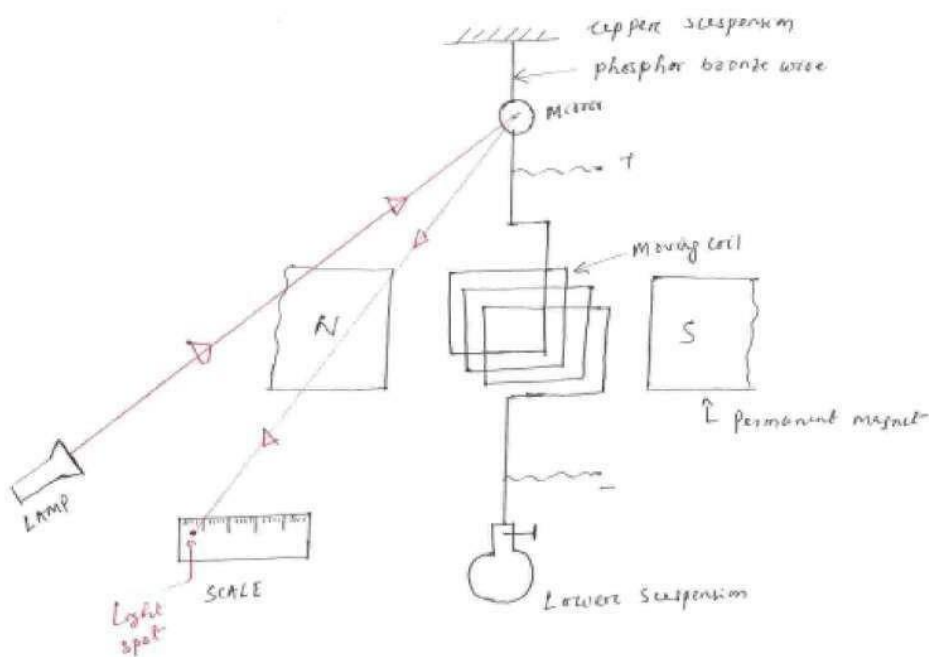 upper suspension
phosphor bronze wire
Mirror
+
Moving coil
N
S
permanent magnet
LAMP
-
SCALE
Lower suspension
Light
spot